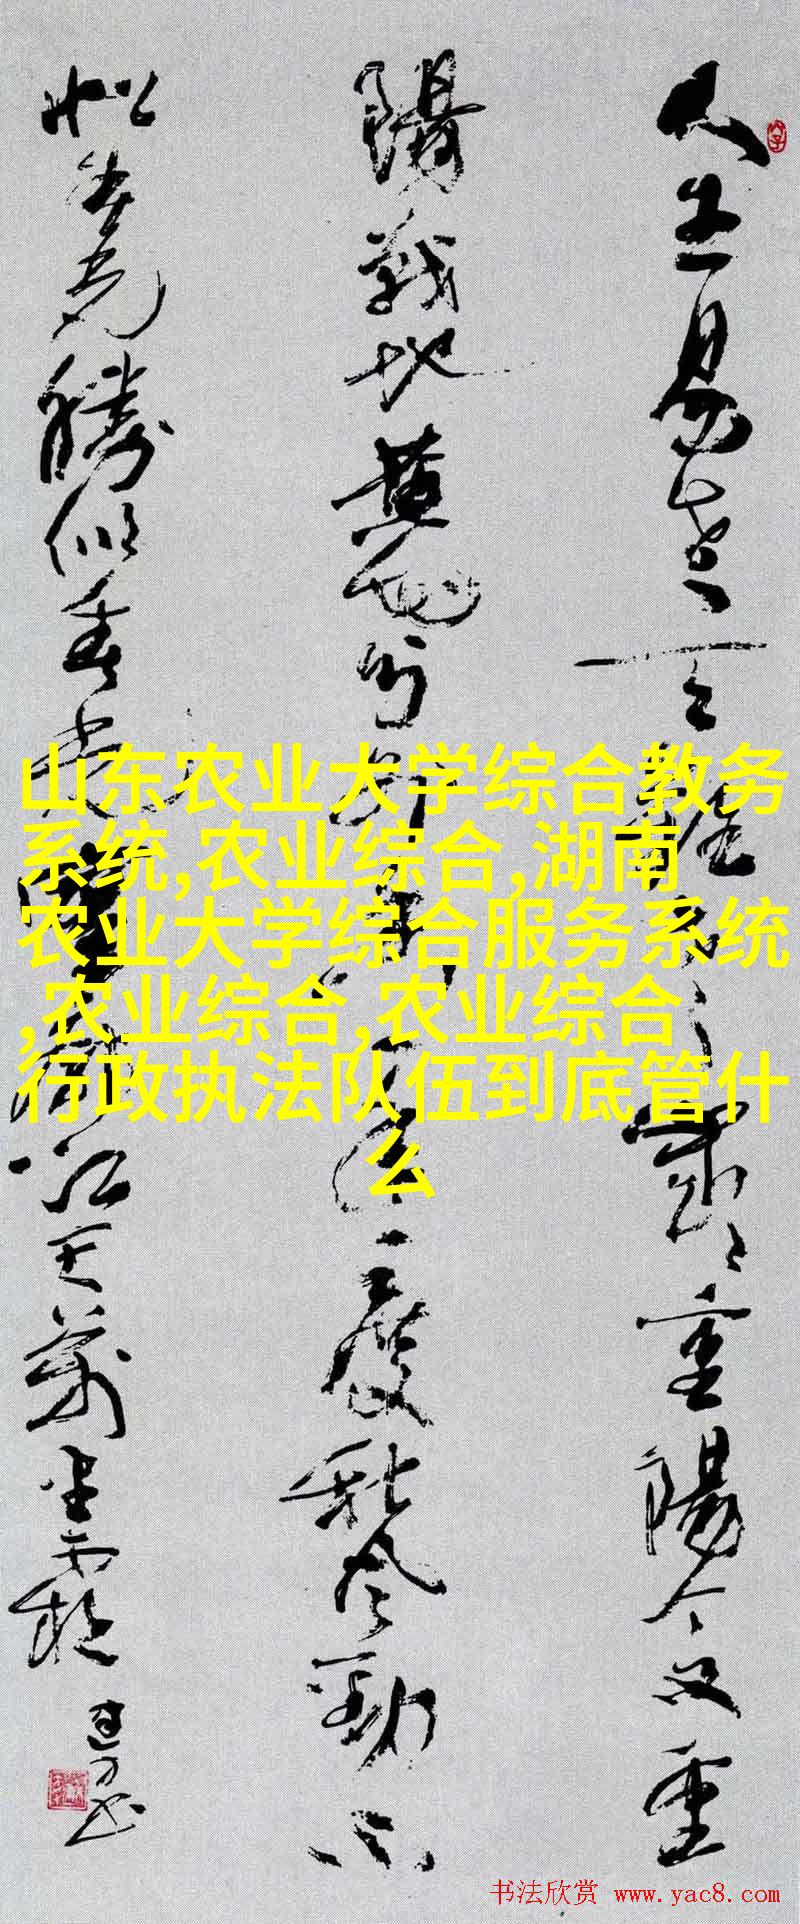 人生易老天難老歲々重陽今又重
陽戰地黄花分外香一年一度秋风勁不
似春光勝似春光寥廓江天萬里霜
山东农业大学综合教务
系统,农业综合,湖南
农业大学综合服务系统
,农业综合,农业综合
行政执法队伍到底管什
么
书法欣赏 www.yac8.com